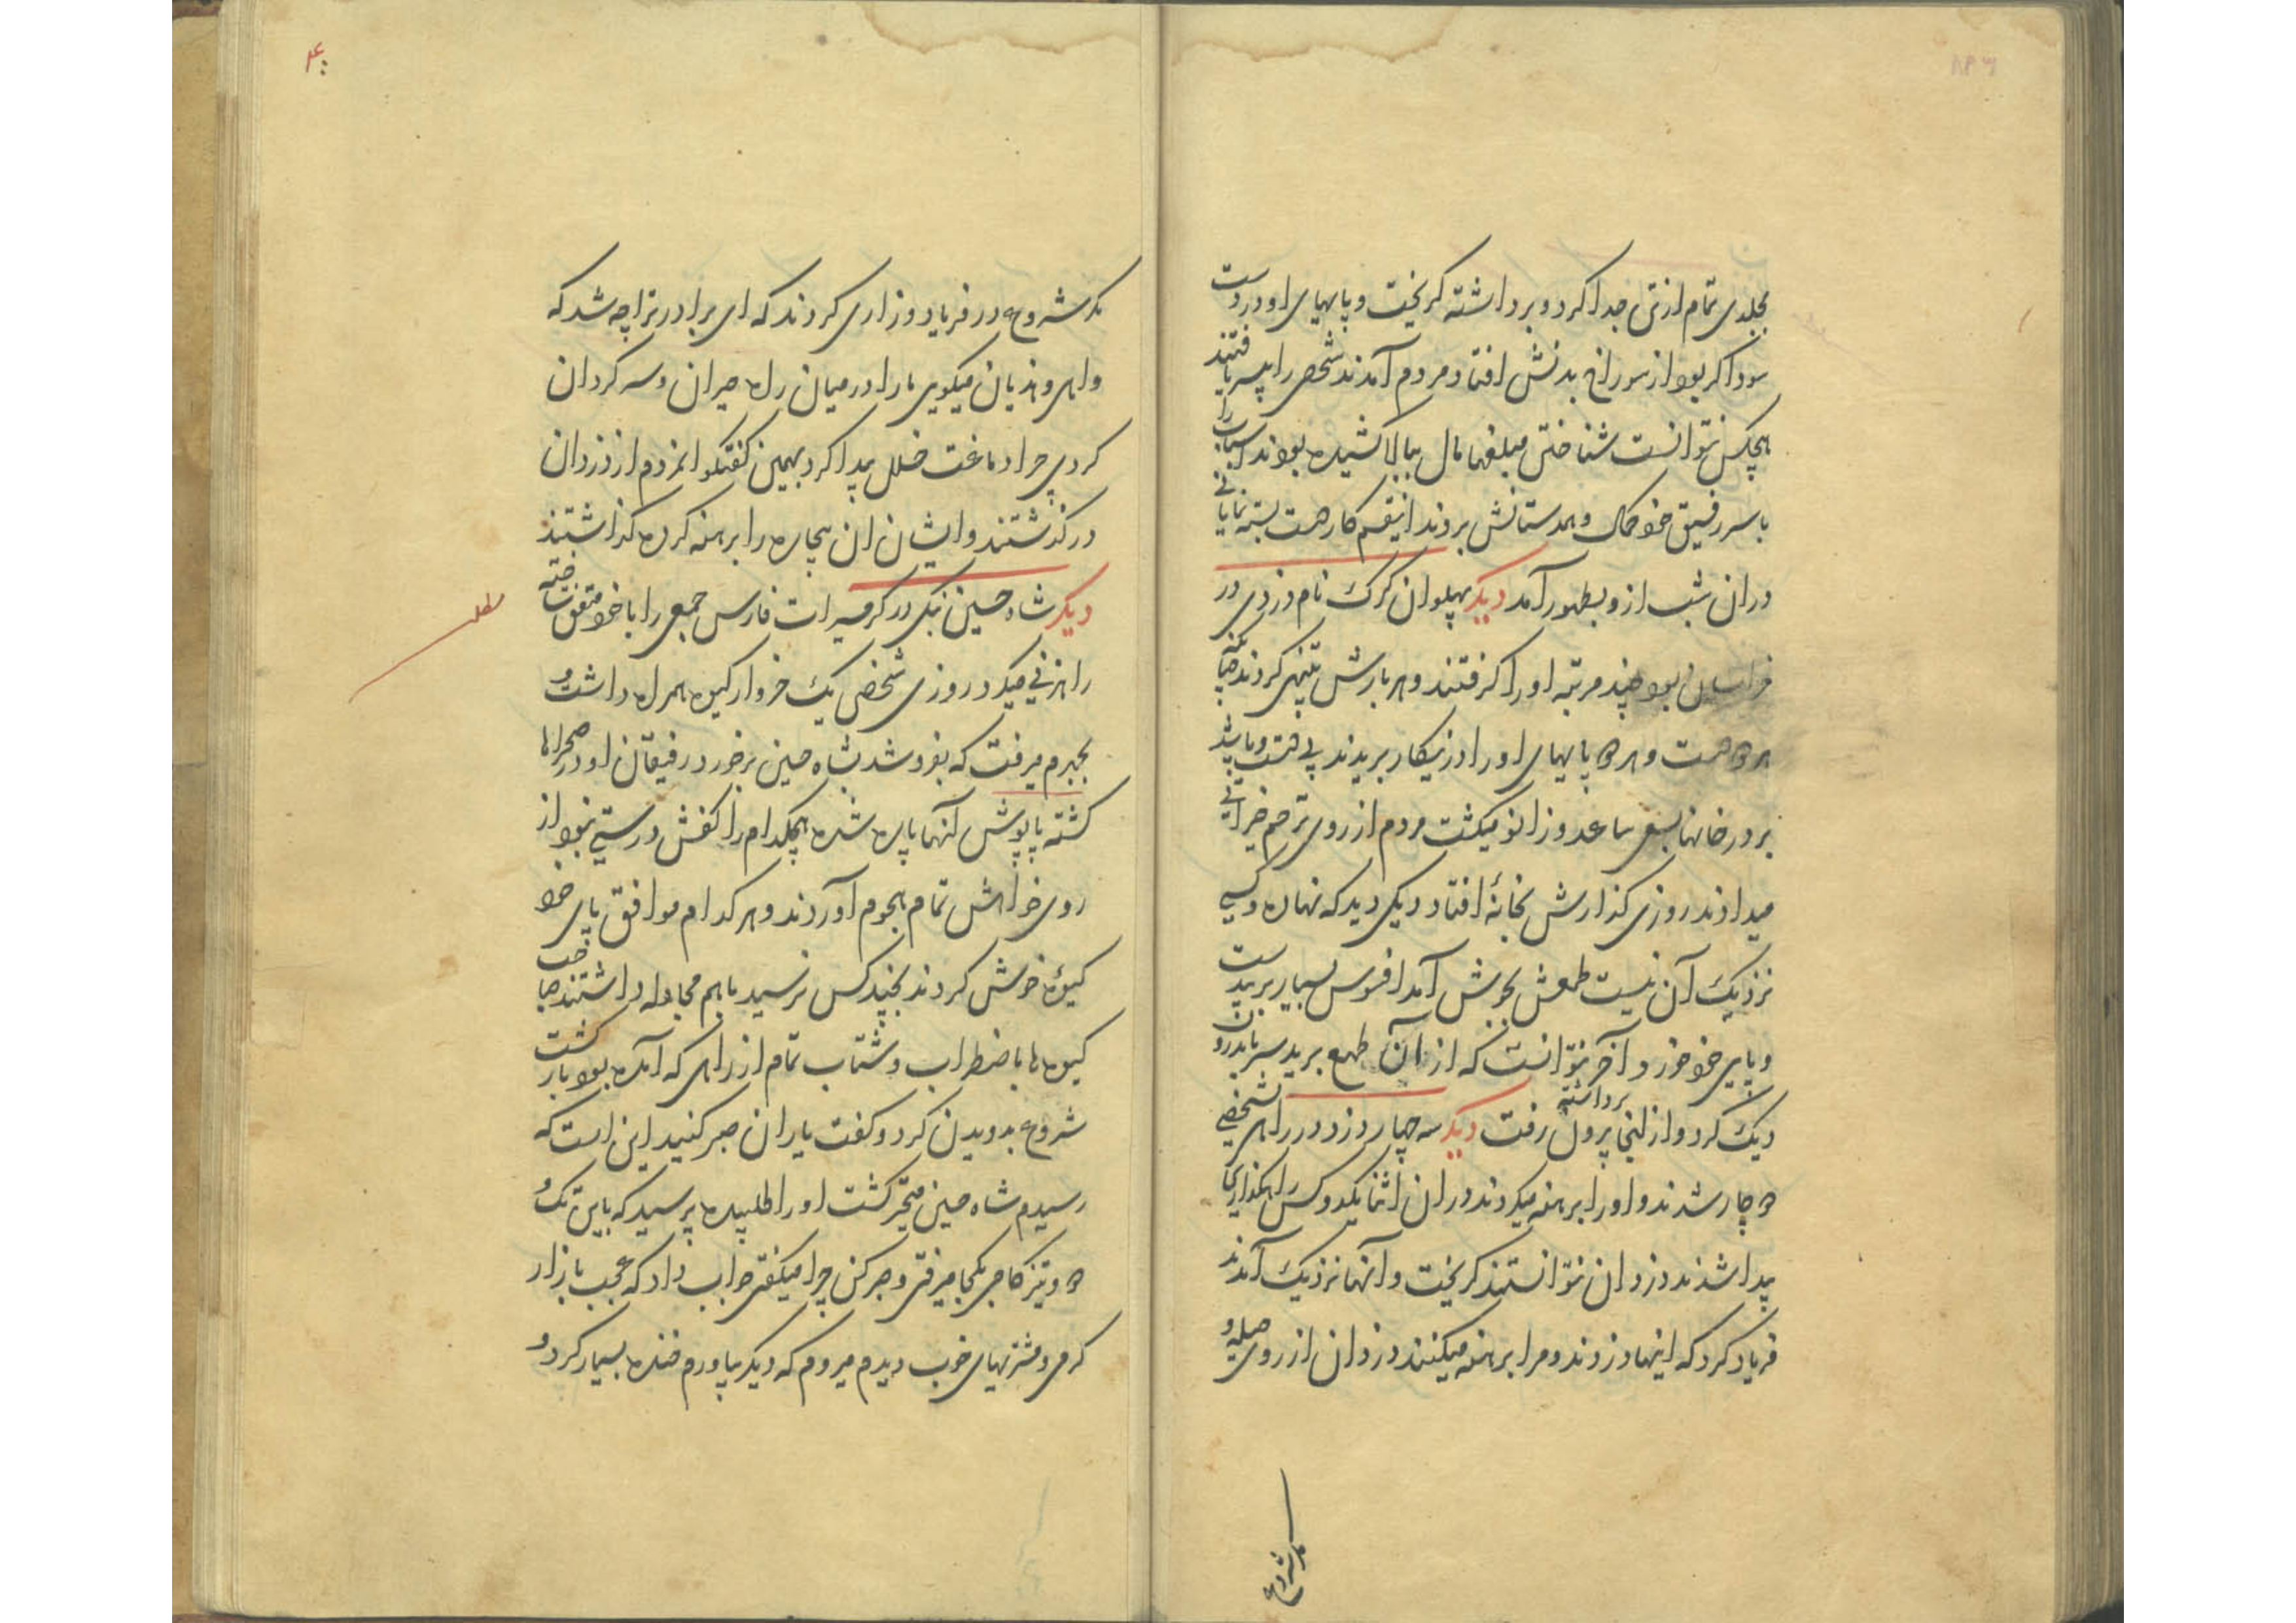 بجلدی تمام از تن جدا کرد و برداشته کریخت و پایهای او در دست
سوداکر بود از سوراخ بدنش افتاد مردم آمدند شخصی را بیسر یافتند
هیچکس نتوانست شناختن مبلغها مال ببالا کشیده بودند اسباب را
با سر رفیق خود حمال و همدستانش بردند اینقسم کار دست بسته نمایانی
دران شب ازو بظهور آمد دیکر پهلوان کرک نام دزدی در
خراسان بود چند مرتبه او را کرفتند و هر بارش تنبیهی کردند چنانچه
هر دو دست و هر دو پایهای او را درینکار بریدند بی دست و پا شد
بر در خانها بسعی ساعد و زانو میکشت مردم از روی ترحم خیراتی
میدادند روزی کذارش بخانهٔ افتاد دیکی دید که نهاده و کسی
نزدیک آن نیست طمعش بجوش آمد افسوس بسیار بریدن دست
و پای خود خورد آخر نتوانست که از آن طمع ببرد سر باندرون
دیک کرد و از انجا برداشته بیرون رفت دیکر سه چهار دزد در راهی بشخصی
دوچار شدند و او را برهنه میکردند دران اثنا یکدو کس راهکذاری
پیدا شدند دزدان نتوانستند کریخت و آنها نزدیک آمدند
فریاد کرد که اینها دزدند و مرا برهنه میکنند دزدان از روی حیله و
مکر شروع
۴۰
مکر شروع در فریاد و زاری کردند که ای برادر ترا چه شد که
واهی و هذیان میکویی ما را در میان راه حیران و سرکردان
کردی چرا دماغت خلل پیدا کرد بهمین کفتکو انمردم از دزدان
درکذشتند و ایشان ان بیچاره را برهنه کرده کذاشتند
دیکر شاه حسین نیکی در کرمسیرات فارس جمعی را با خود متفق ساخته
راهزنی میکرد روزی شخصی یک خروار کیوه همراه داشت و
بجهرم میرفت که بفروشد بشاه حسین برخورد رفیقان او در صحراها
کشته پاپوش آنها پاره شده هیچکدام را کفش درستی نبود از
روی خواهش تمام هجوم آوردند و هر کدام موافق پای خود
کیوهٔ خوش کردند بچند کس نرسید باهم مجادله داشتند صاحب
کیوه ها باضطراب و شتاب تمام از راهی که آمده بود بازکشت
شروع بدویدن کرد و کفت یاران صبر کنید این است که
رسیدم شاه حسین متحیر کشت او را طلبیده پرسید که باین تک و
دو و تیز کامی بکجا میرفتی و صبر کن چرا میکفتی جواب داد که عجب بازار
کرمی و مشتریهای خوب دیدم میروم که دیکر بیاورم خنده بسیار کرد و